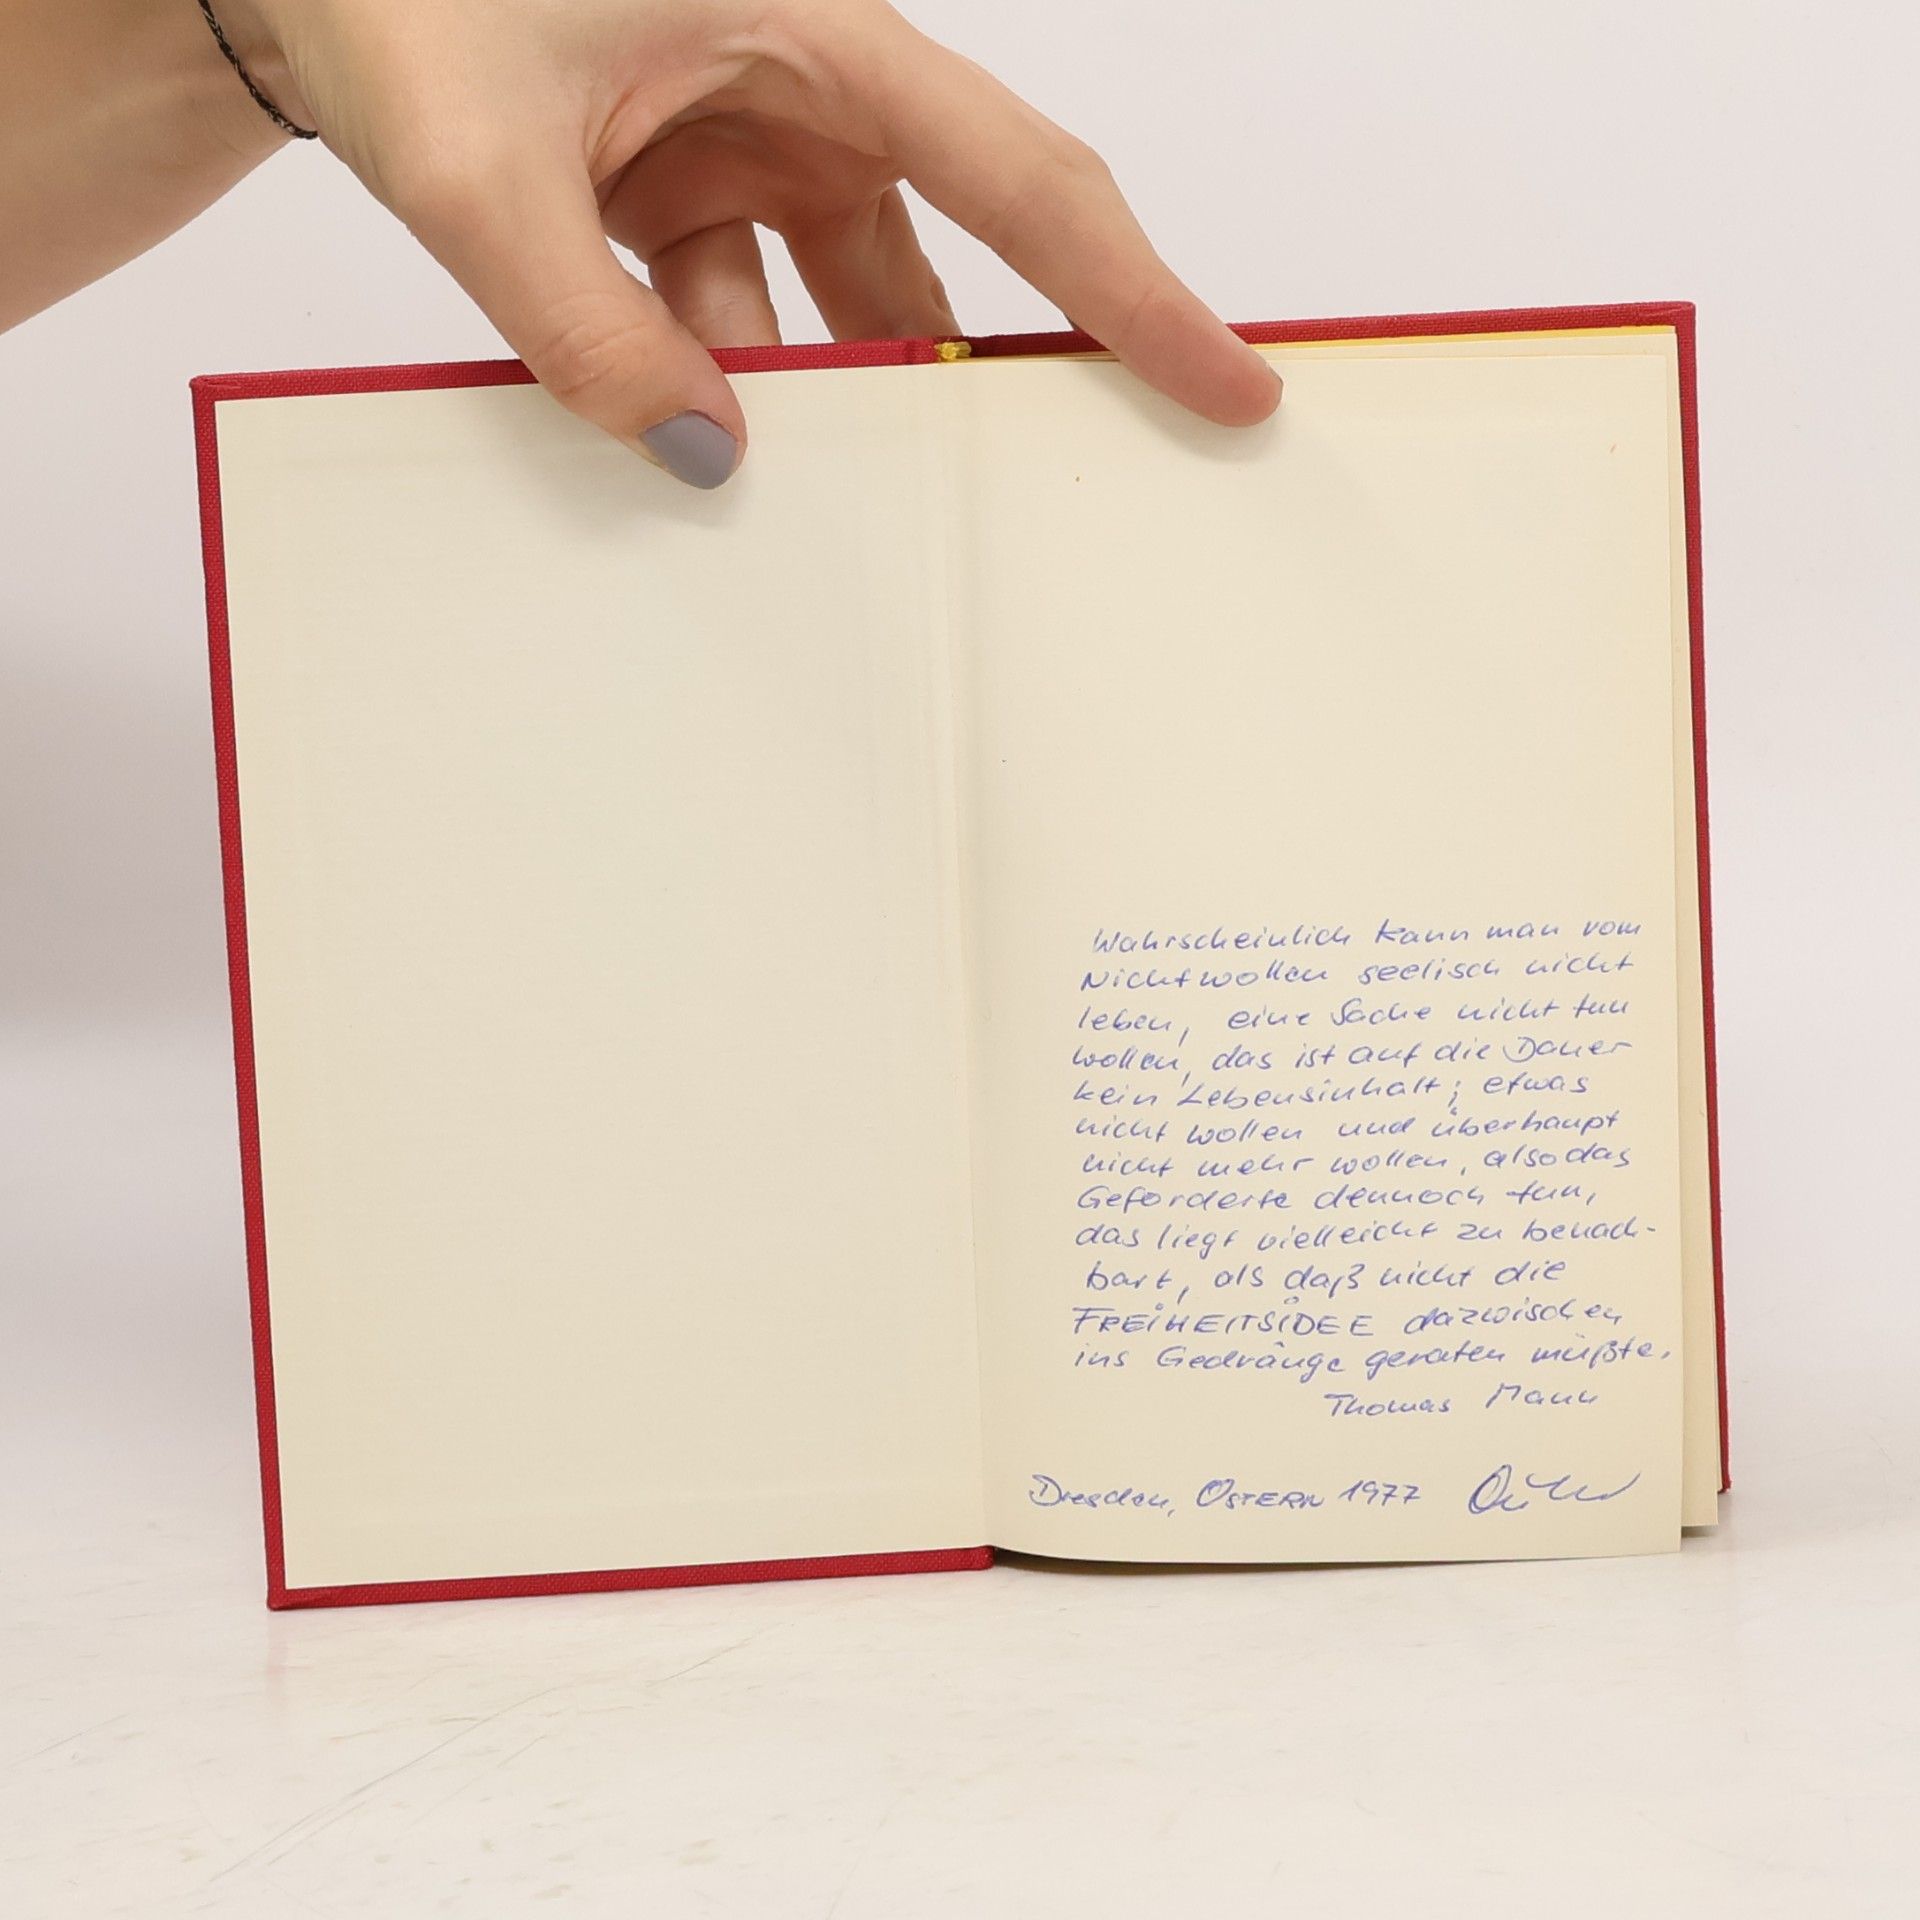 Wahrscheinlich kann man vom
Nichtwollen seelisch nicht
leben, eine Sache nicht tun
wollen, das ist auf die Dauer
kein Lebensinhalt; etwas
nicht wollen und überhaupt
nicht mehr wollen, also das
Geforderte dennoch tun,
das liegt vielleicht zu benach-
bart, als daß nicht die
FREIHEITSIDEE dazwischen
ins Gedränge geraten müßte.
Thomas Mann
Dresden, OSTERN 1977